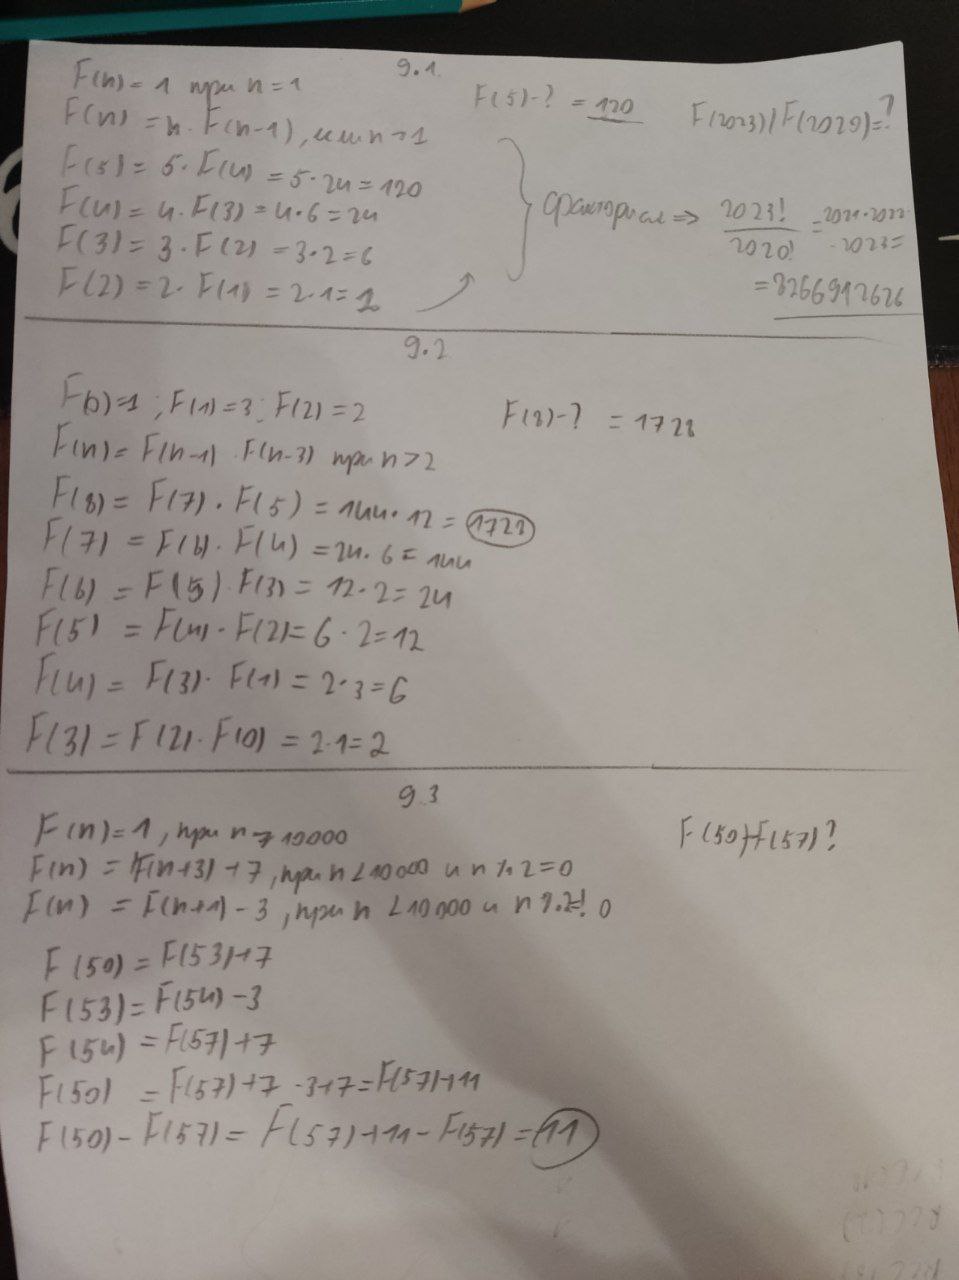 9.1
F(n) = 1 при n = 1
F(5) - ? = 120
F(2023)/F(2020)=?
F(n) = n · F(n-1), если n > 1
F(5) = 5 · F(4) = 5 · 24 = 120
F(4) = 4 · F(3) = 4 · 6 = 24
F(3) = 3 · F(2) = 3 · 2 = 6
F(2) = 2 · F(1) = 2 · 1 = 2
факториал => 2023! / 2020! = 2021 · 2022
· 2023 =
= 8266912626
9.2
F(0)=1 ; F(1) = 3 ; F(2) = 2
F(8) - ? = 1728
F(n) = F(n-1) · F(n-3) при n > 2
F(8) = F(7) · F(5) = 144 · 12 = 1728
F(7) = F(6) · F(4) = 24 · 6 = 144
F(6) = F(5) · F(3) = 12 · 2 = 24
F(5) = F(4) · F(2) = 6 · 2 = 12
F(4) = F(3) · F(1) = 2 · 3 = 6
F(3) = F(2) · F(0) = 2 · 1 = 2
9.3
F(n) = 1, при n > 10000
F(50)-F(57)?
F(n) = F(n+3) + 7, при n < 10000 и n % 2 = 0
F(n) = F(n+1) - 3, при n < 10000 и n % 2 != 0
F(50) = F(53)+7
F(53) = F(54) - 3
F(54) = F(57) + 7
F(50) = F(57) + 7 - 3 + 7 = F(57) + 11
F(50) - F(57) = F(57) + 11 - F(57) = 11